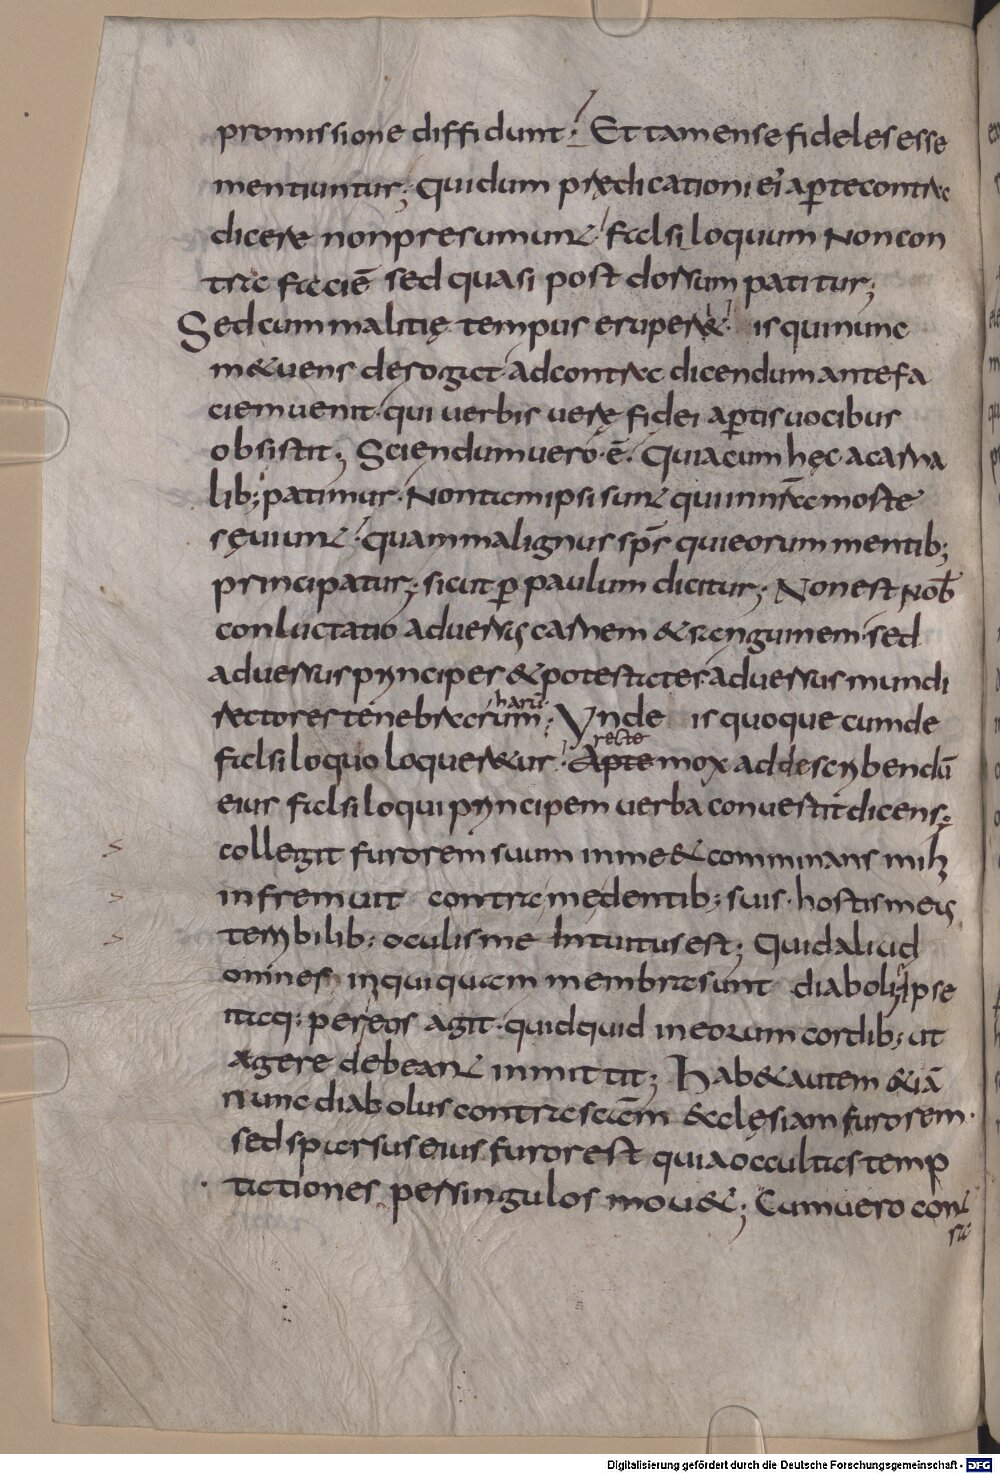 promissione diffidunt; Et tamen se fideles esse
mentiuntur; Qui dum prędicationi ei aꝑte contra
dicere non presumunt falsiloquum Non con
tra faciē sed quasi post dorsum patitur;
Sed cum malitię tempus eruperit is qui nunc
metuens derogat ad contradicendum ante fa
ciem uenit qui uerbis uerę fidei aꝑtis uocibus
obsistit; Sciendum uero ē. Quia cum hęc a carna
lib; patimur. Non tam ipsi sunt qui in nr̄a morte
sęuiunt quam malignus sp̄s qui eorum mentib;
principatur; sicut ꝑ paulum dicitur; Non est nob̄
conluctatio aduersus carnem & sanguinem sed
aduersus principes & potestates aduersus mundi
rectores tenebrarum harū; Vnde is quoque cum de
falsiloquo loqueretur. Apte recte mox ad describendū
eius falsiloqui principem uerba conuertit dicens;
collegit furorem suum in me & comminans mihi
infremuit contra me dentib; suis. hostis meus
terribilib; oculis me Intuitus est; Quid aliud
omnes iniqui quam membra sunt diaboli; ipse
itaq; per eos agit. quidquid in eorum cordib; ut
agere debeant inmittit; Habet autem & iā
nunc diabolus contra scām ecclęsiam furorem.
sed sparsus eius furor est quia occultas temp
tationes per singulos mouet; Cum uero cont
ra
Digitalisierung gefördert durch die Deutsche Forschungsgemeinschaft - DFG